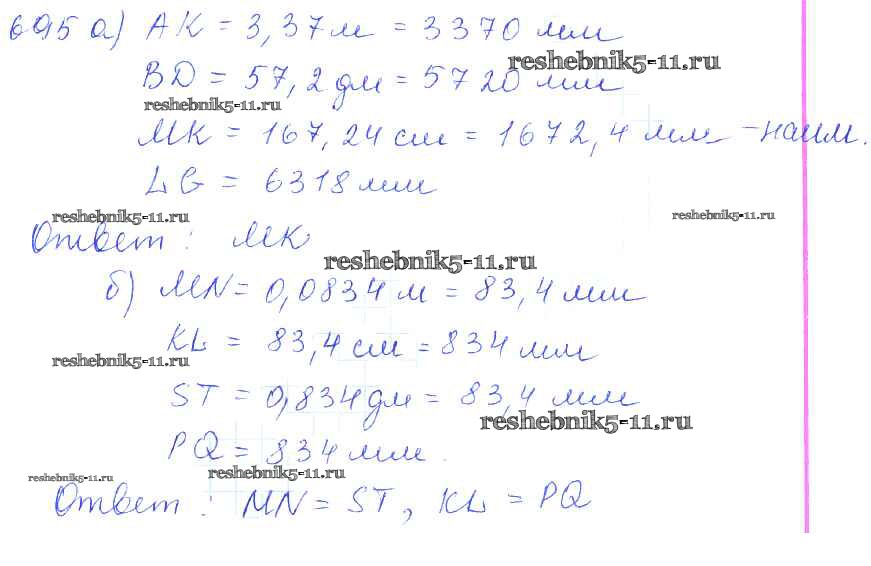 695 а) AK = 3,37 м = 3370 мм
reshebnik5-11.ru
BD = 57,2 дм = 5720 мм
reshebnik5-11.ru
MK = 167,24 см = 1672,4 мм - наим.
LG = 6318 мм
reshebnik5-11.ru reshebnik5-11.ru
Ответ : MK
reshebnik5-11.ru
б) MN = 0,0834 м = 83,4 мм
KL = 83,4 см = 834 мм
reshebnik5-11.ru
ST = 0,834 дм = 83,4 мм
reshebnik5-11.ru
PQ = 834 мм.
reshebnik5-11.ru reshebnik5-11.ru
Ответ : MN = ST, KL = PQ